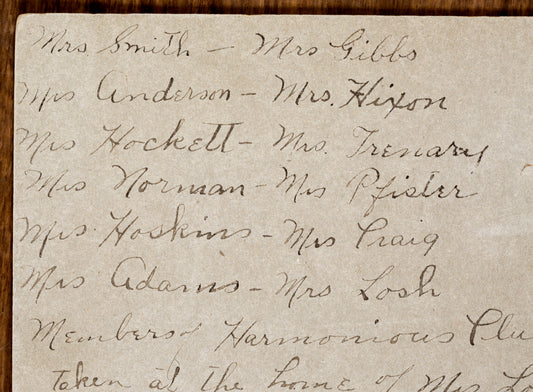 Mrs Smith – Mrs Gibbs
Mrs Anderson – Mrs. Hixon
Mrs Hockett – Mrs. Trenary
Mrs Norman – Mrs Pfister
Mrs Hoskins – Mrs Craig
Mrs Adams – Mrs Losh
Members of Harmonious Clu
taken at the home of Mrs Lo